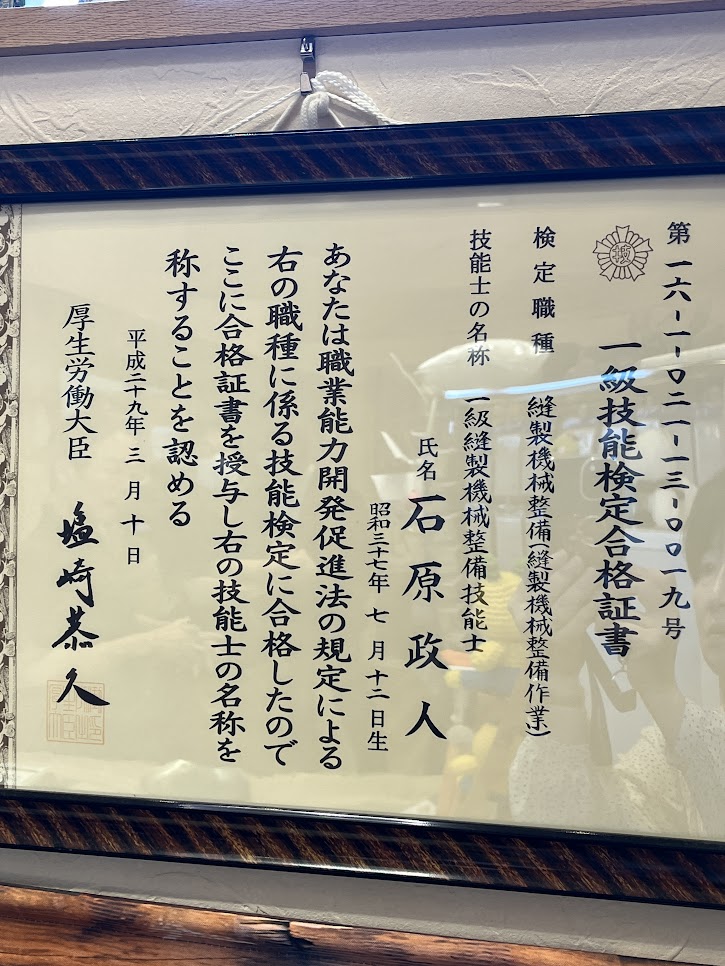 第一六-一-〇二一-一三-〇〇一九号
一級技能検定合格証書
検定職種 縫製機械整備(縫製機械整備作業)
技能士の名称 一級縫製機械整備技能士
氏名 石原政人
昭和三十七年 七月十二日生
あなたは職業能力開発促進法の規定による
右の職種に係る技能検定に合格したので
ここに合格証書を授与し右の技能士の名称を
称することを認める
平成二十九年 三月十日
厚生労働大臣 塩崎恭久